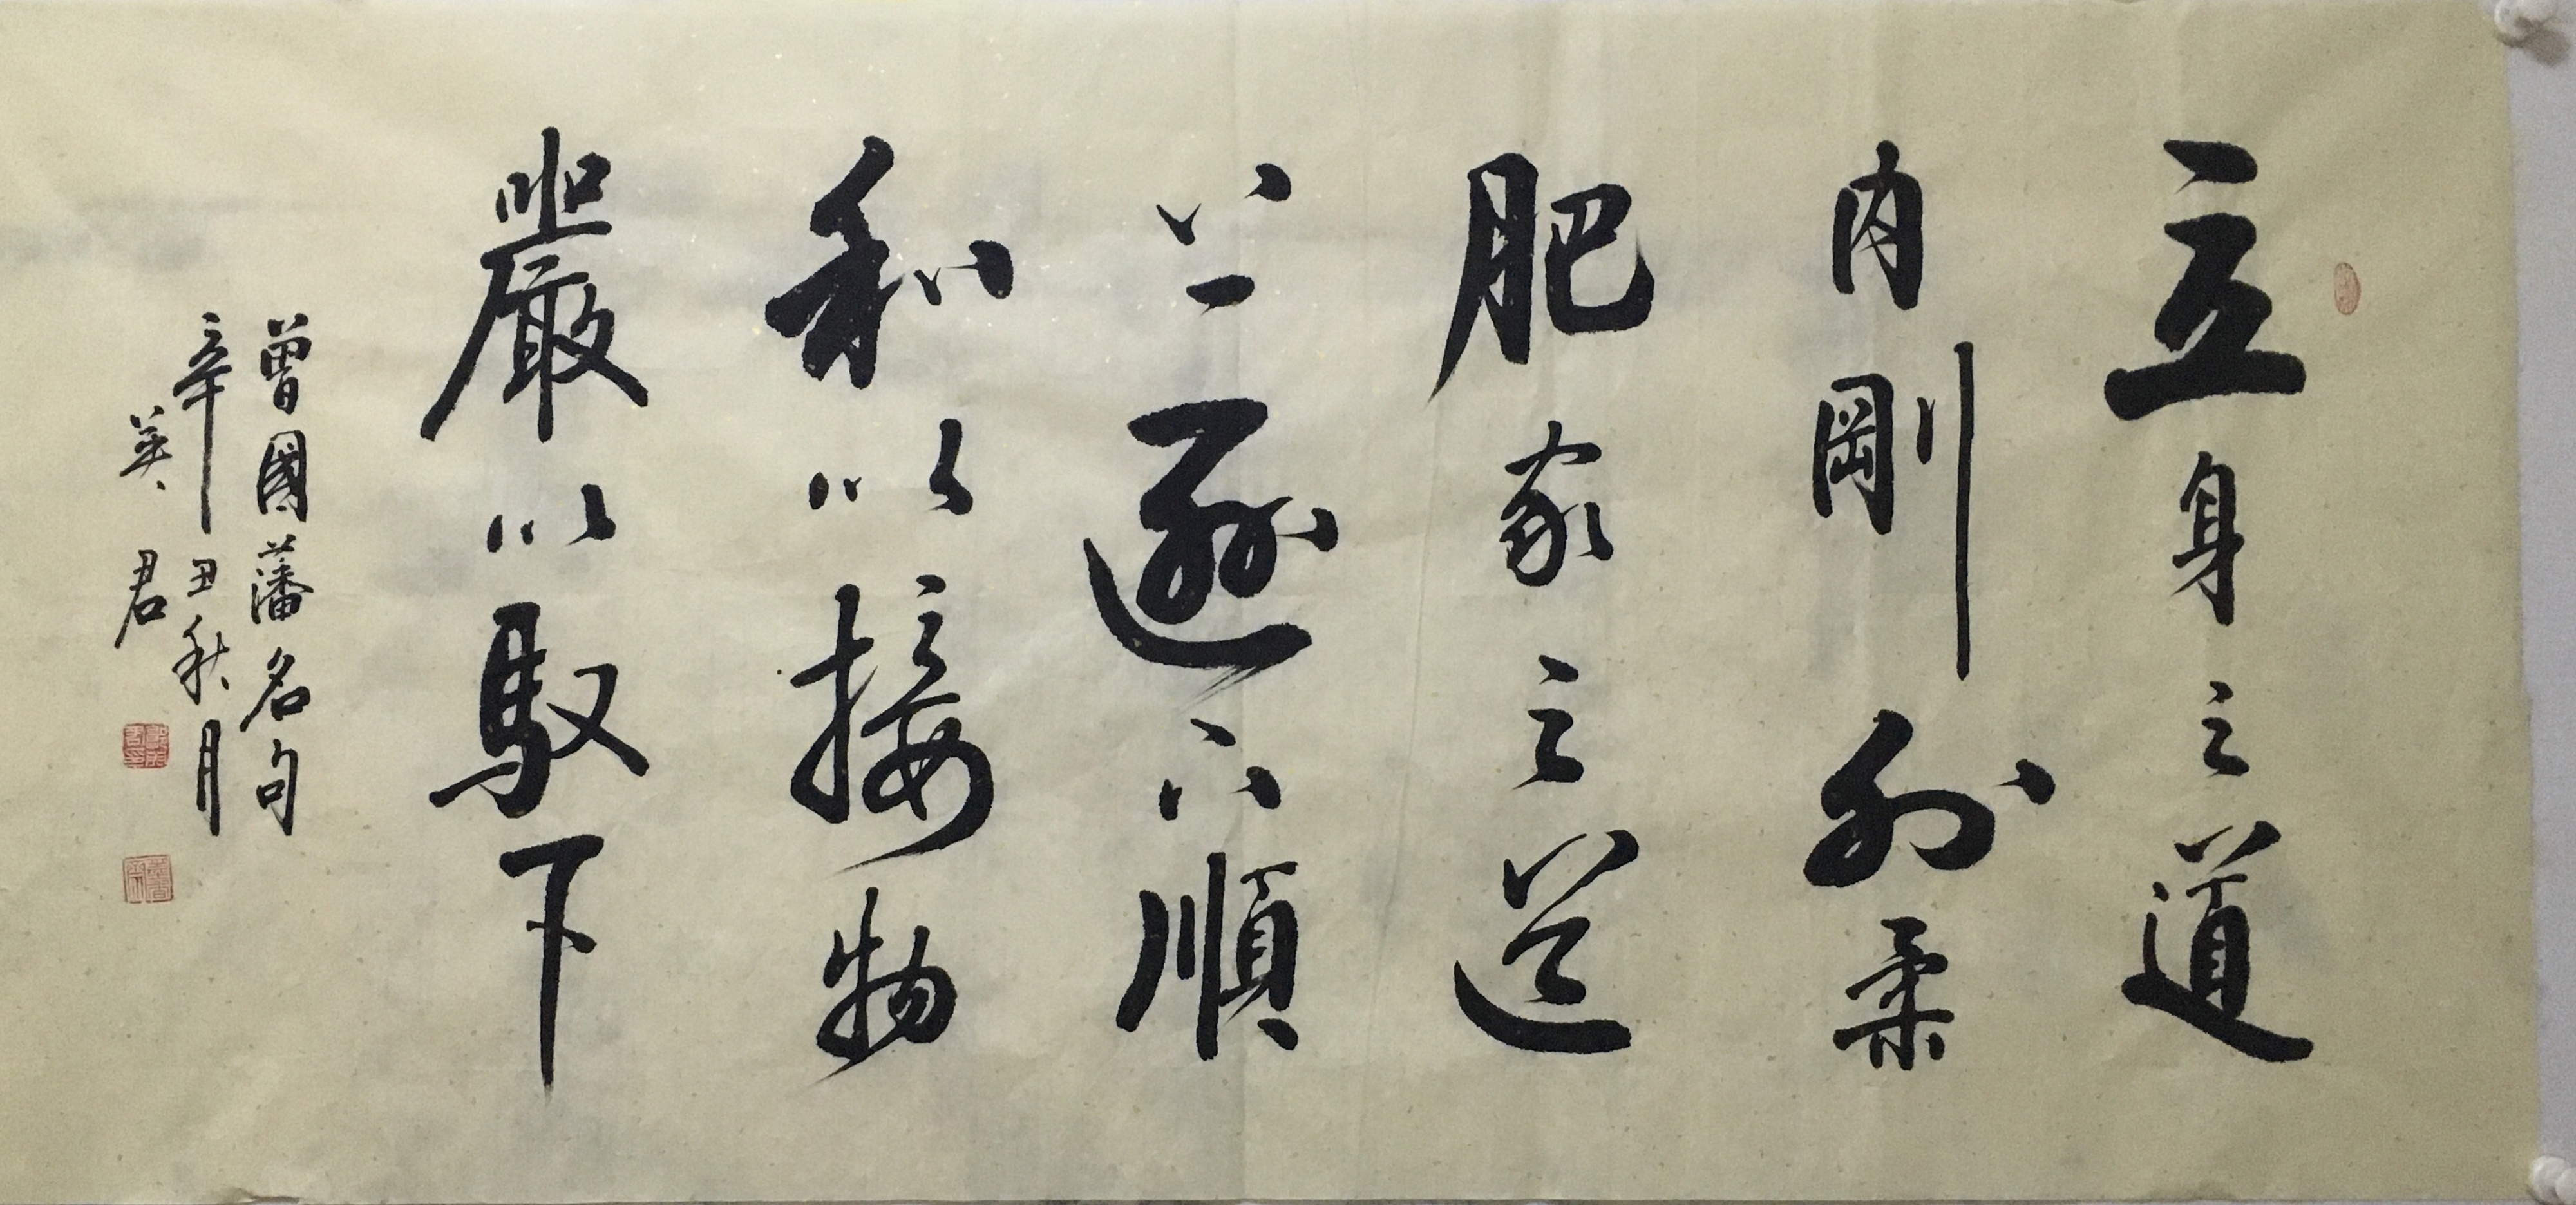 立身之道
内剛外柔
肥家之道
上遜下順
和以接物
嚴以馭下
曾國藩名句
辛丑秋月
英君